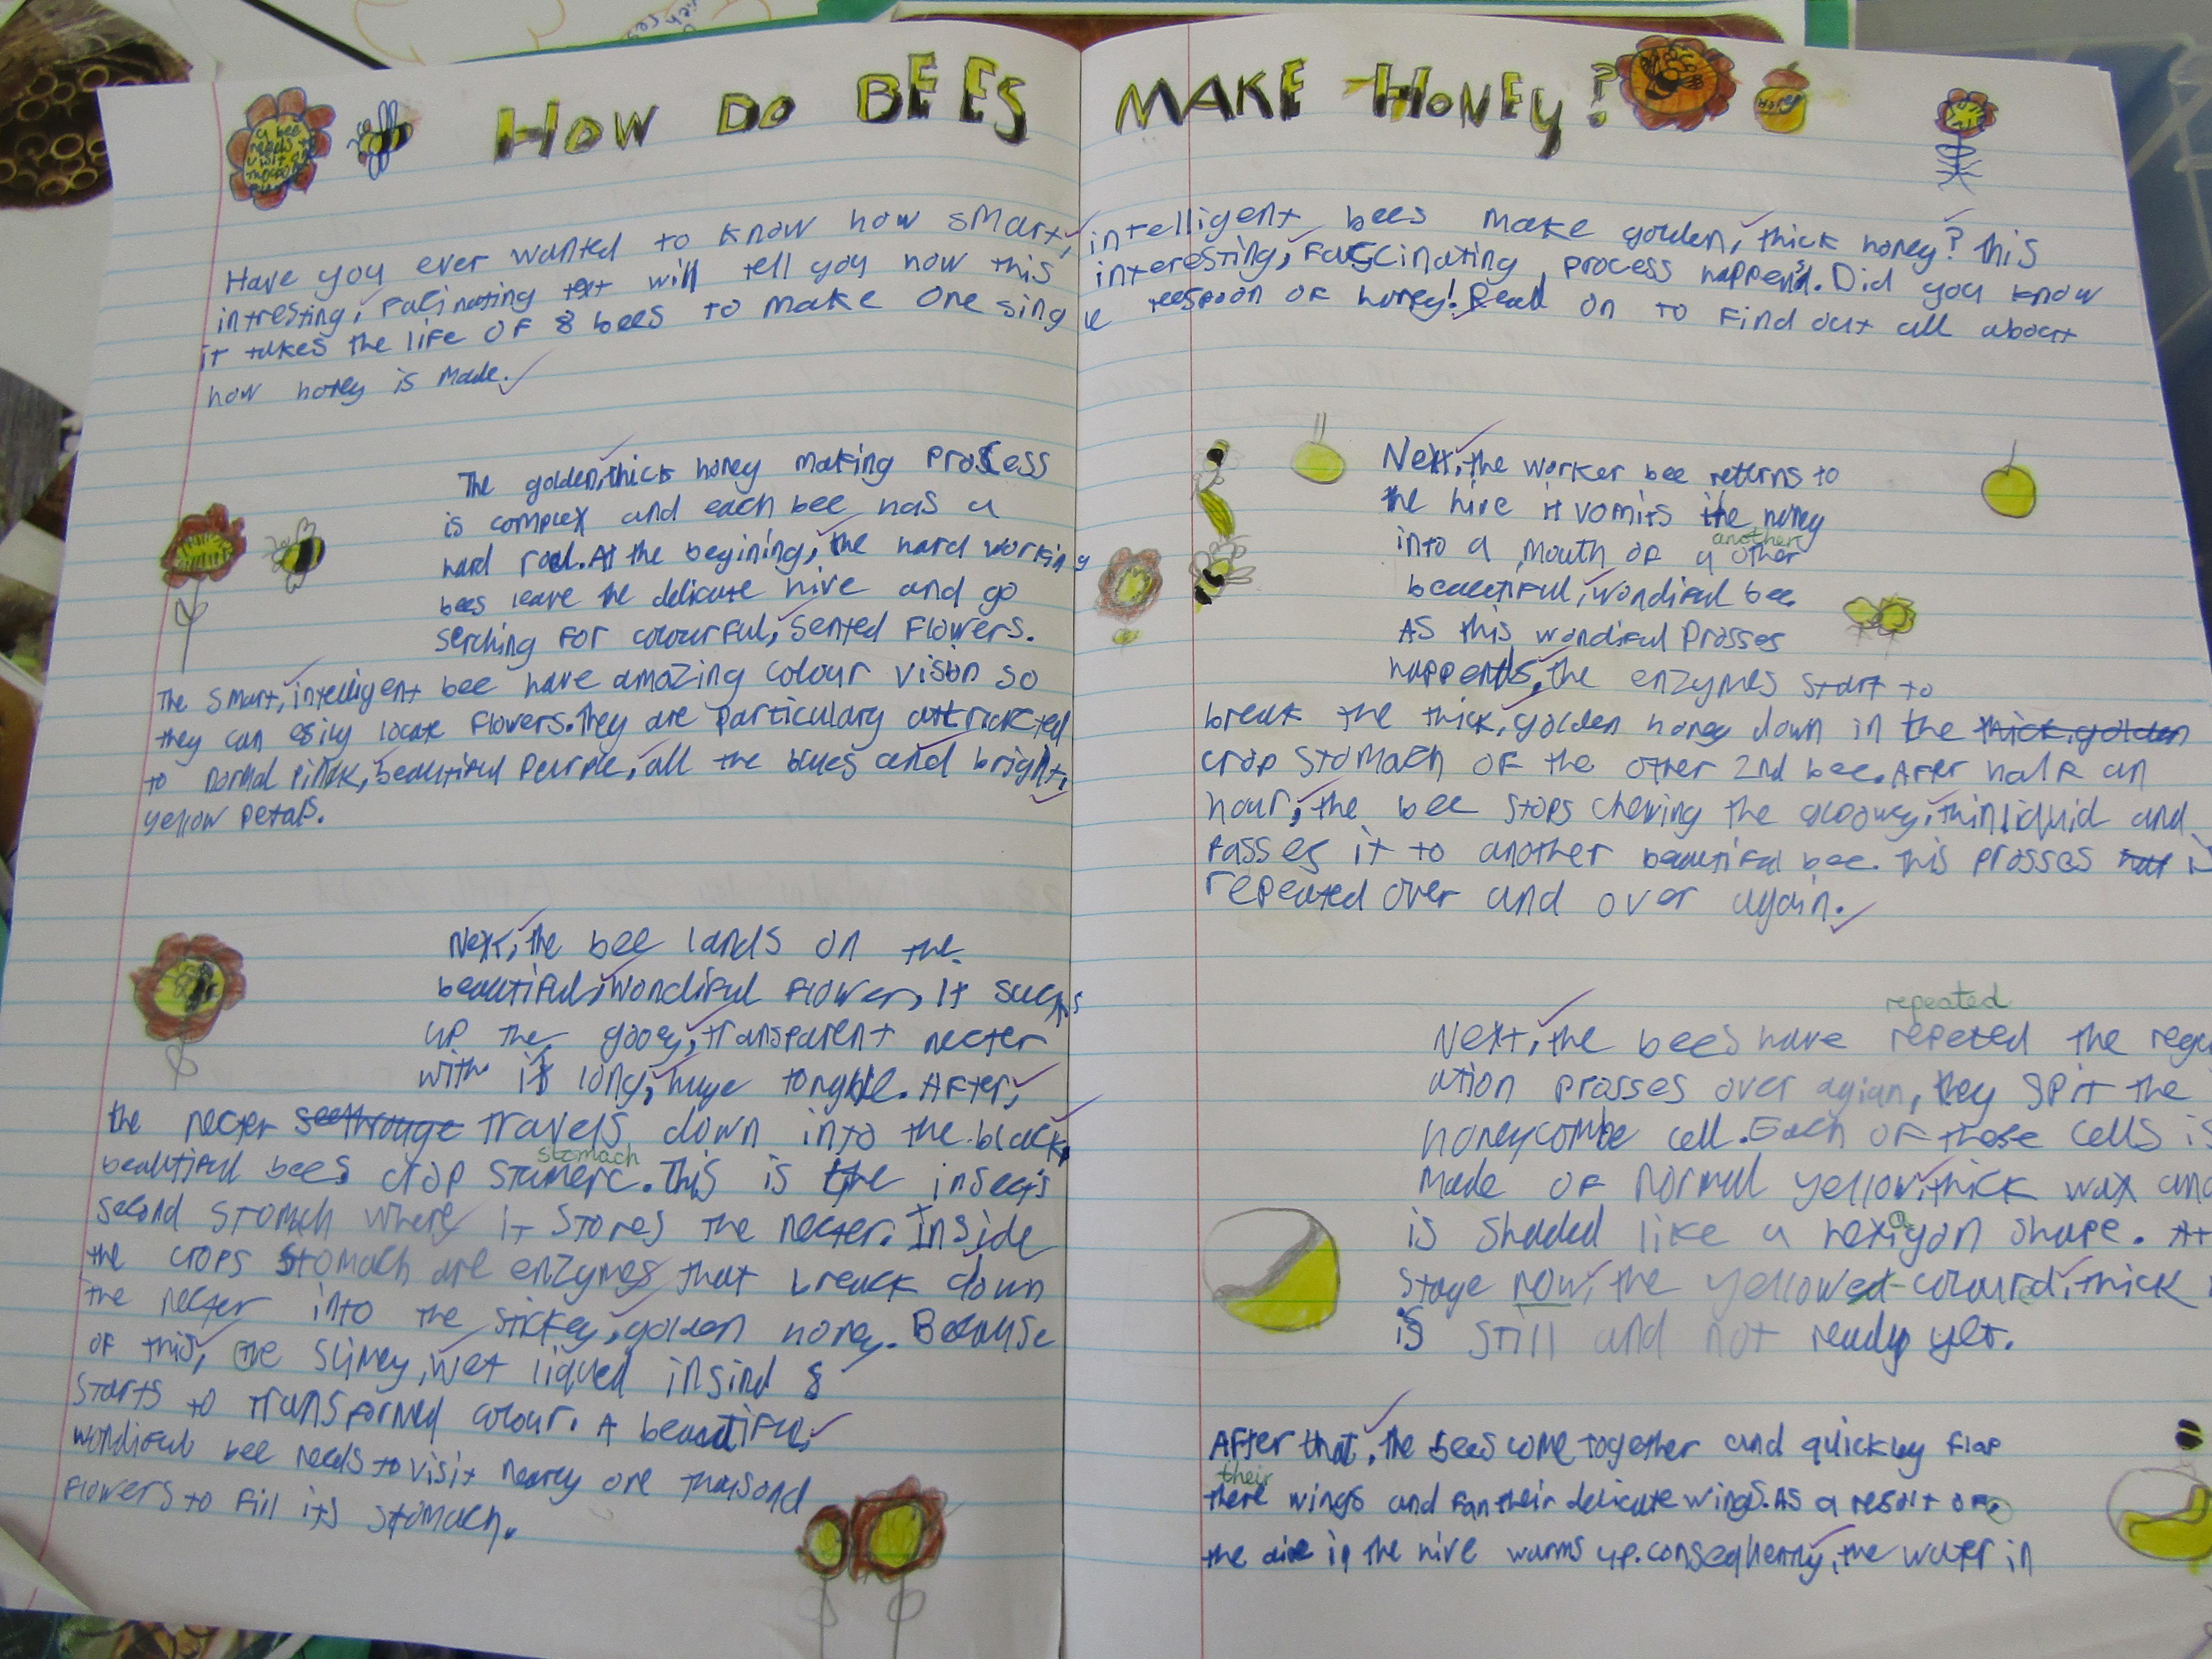 HOW DO BEES MAKE HONEY?
Honey
a bee
needs to
visit
Have you ever wanted to know how smart, intelligent bees make golden, thick honey? This
intresting, facinating text will tell you how this interesting, fascinating process happens. Did you know
it takes the life of 8 bees to make one single teespoon of honey! Read on to find out all about
how honey is made.
The golden, thick honey making process
is complex and each bee has a
hard rool. At the begining, the hard working
bees leave the delicate hive and go
serching for colourful, sented flowers.
The smart, intelligent bee have amazing colour vision so
they can esily locate flowers. They are particulary attrackted
to normal pink, beautiful purple, all the blues and bright,
yellow petals.
Next, the bee lands on the
beautiful, wondiful flower, it sucks
up the gooey, transparent necter
with it's long, huge tongue. After,
the necter seethrouge travels down into the black,
beautiful bees crop stumerc. This is the insects
stomach
second stomach where it stores the necter. Inside
the crops stomach are enzymes that break down
the necter into the stickey, golden honey. Because
of this, the slimey, wet liqued insind
starts to transformed colour. A beautiful,
wondiful bee needs to visit nearly one thousond
flowers to fill its stomach.
Next, the worker bee returns to
the hive it vomits the honey
another
into a mouth of a other
beautiful, wondiful bee.
As this wondiful prosses
happends, the enzymes start to
break the thick, golden honey down in the thick, golden
crop stomach of the other 2nd bee. After half an
hour, the bee stops chewing the gloowey, thin liquid and
passes it to another beautiful bee. This prosses is
repeated over and over again.
repeated
Next, the bees have repeted the regu
ation prosses over agian, they spit the
honeycombe cell. Each of those cells is
made of normal yellow, thick wax and
is shaded like a hexagon shape. At
stage now, the yellowed-colourd, thick
is still and not ready yet.
After that, the bees come together and quickley flap
their
there wings and fan their delicate wings. As a result of
the aire in the hive warms up. Conseqhently, the water in